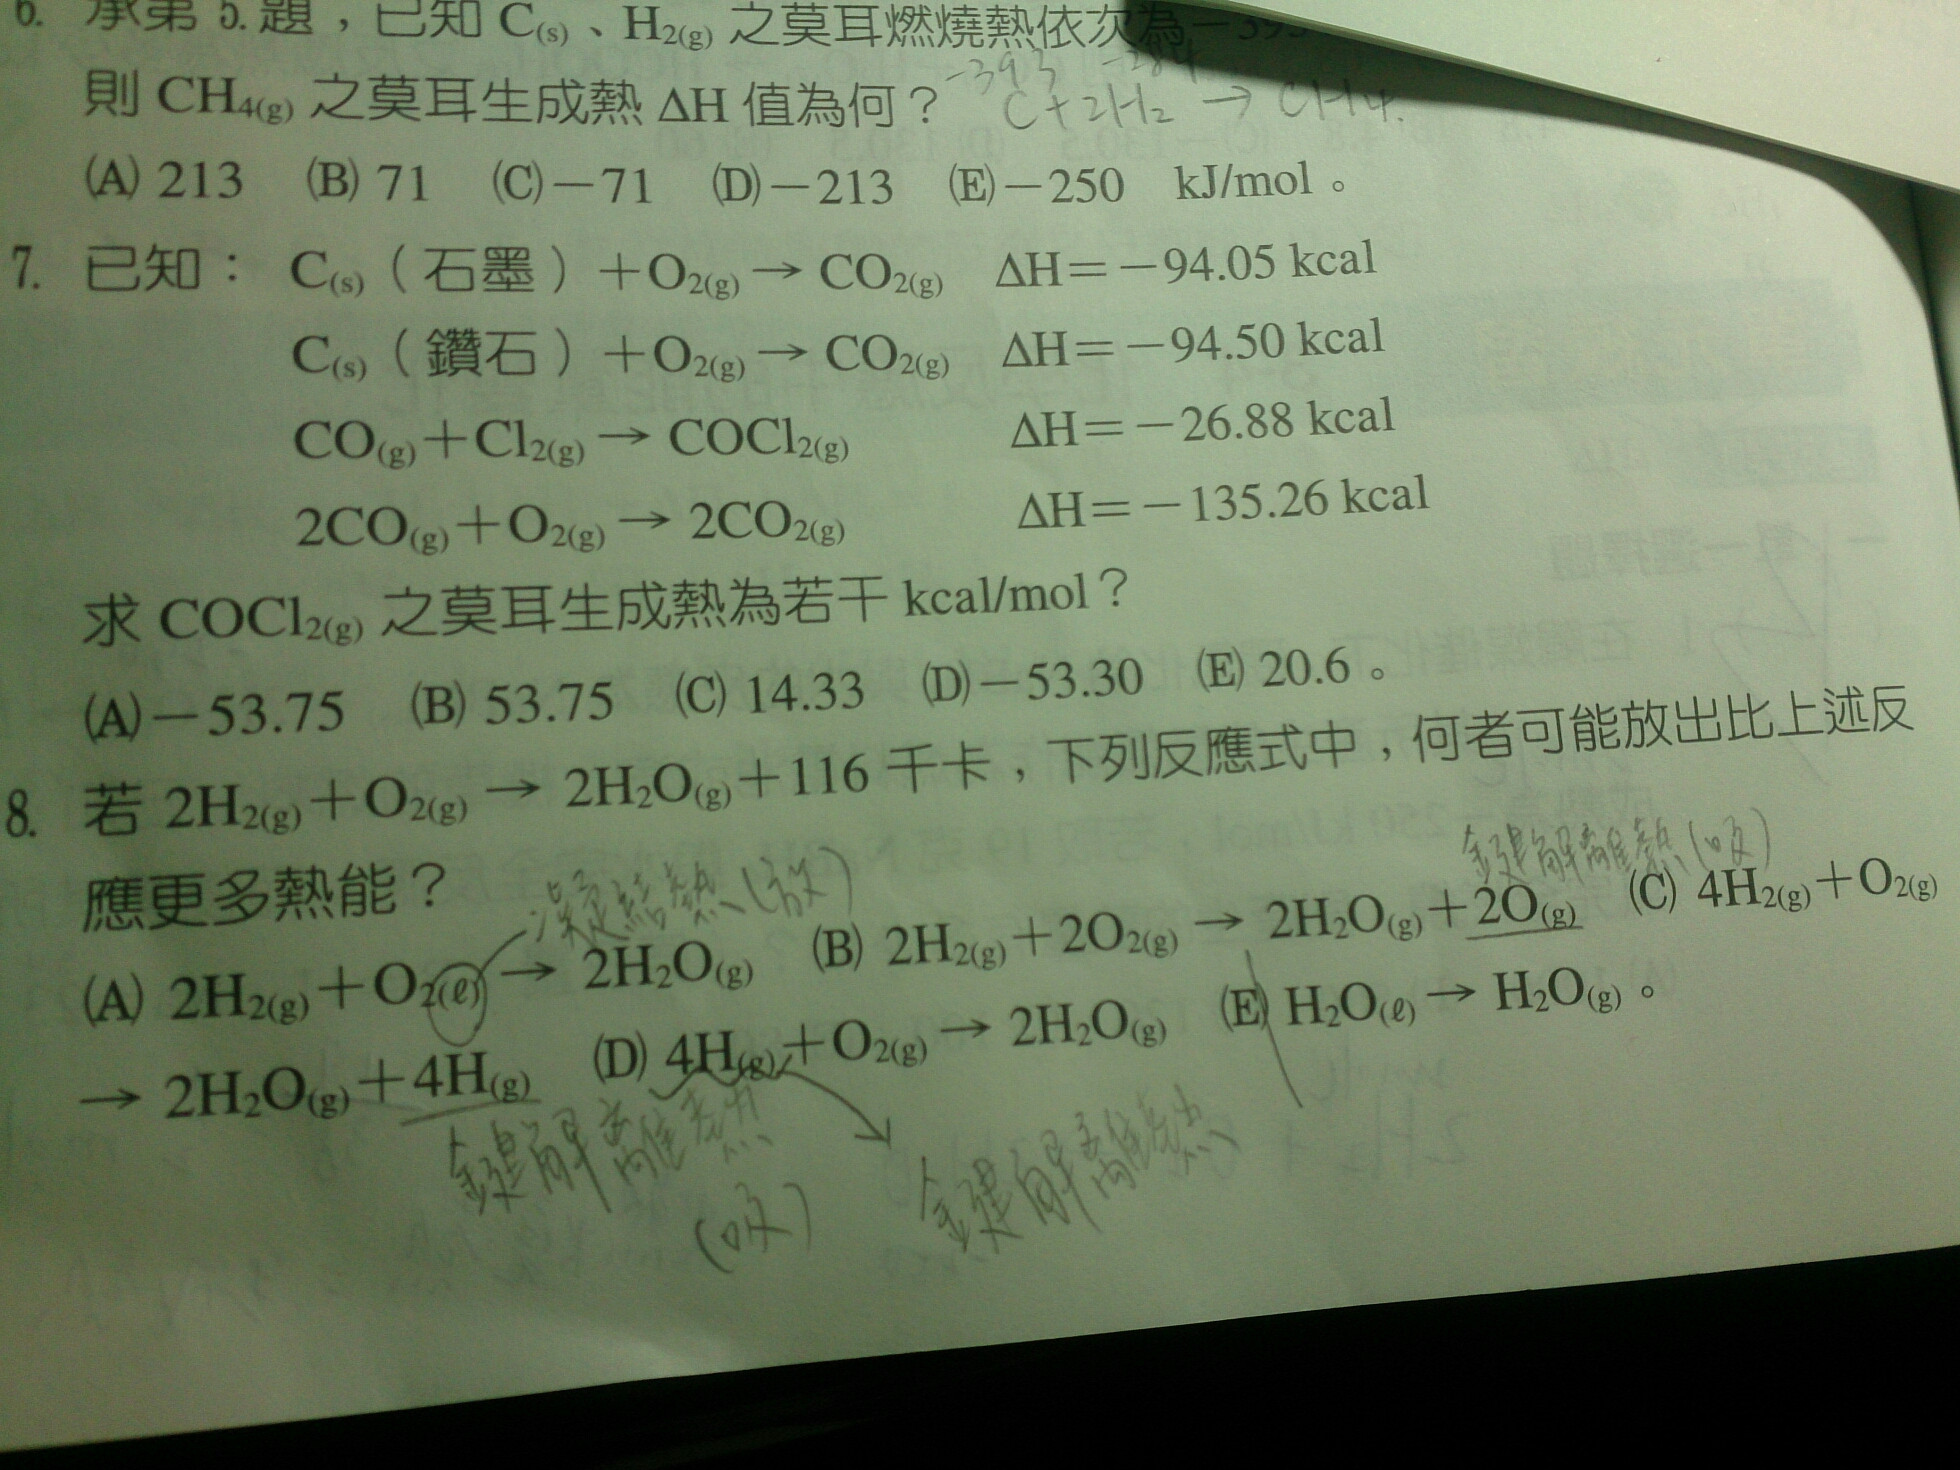 6. 承第 5. 題，已知 C(s)、H2(g) 之莫耳燃燒熱依次為－393
則 CH4(g) 之莫耳生成熱 ΔH 值為何？ -393 -284 C+2H2 → CH4.
(A) 213 (B) 71 (C)－71 (D)－213 (E)－250 kJ/mol。
7. 已知： C(s)（石墨）＋O2(g) → CO2(g) ΔH＝－94.05 kcal
C(s)（鑽石）＋O2(g) → CO2(g) ΔH＝－94.50 kcal
CO(g)＋Cl2(g) → COCl2(g) ΔH＝－26.88 kcal
2CO(g)＋O2(g) → 2CO2(g) ΔH＝－135.26 kcal
求 COCl2(g) 之莫耳生成熱為若干 kcal/mol？
(A)－53.75 (B) 53.75 (C) 14.33 (D)－53.30 (E) 20.6。
8. 若 2H2(g)＋O2(g) → 2H2O(g)＋116 千卡，下列反應式中，何者可能放出比上述反
應更多熱能？
凝結熱(放)
鍵解離熱(吸)
(A) 2H2(g)＋O2(ℓ) → 2H2O(g) (B) 2H2(g)＋2O2(g) → 2H2O(g)＋2O(g) (C) 4H2(g)＋O2(g)
→ 2H2O(g)＋4H(g) (D) 4H(g)＋O2(g) → 2H2O(g) (E) H2O(ℓ) → H2O(g)。
鍵解離熱
(吸)
鍵解離熱